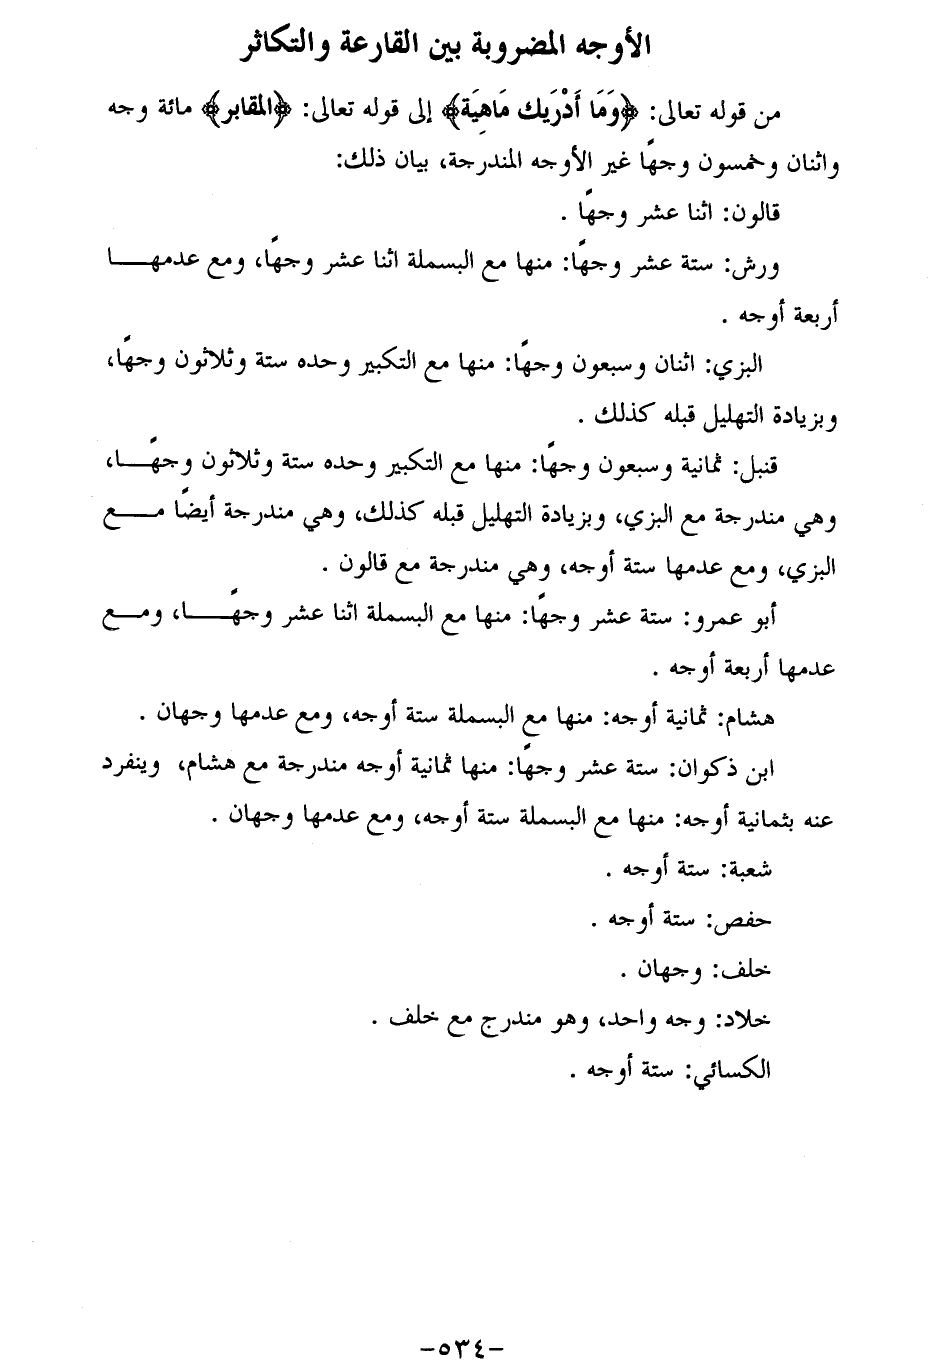 الأوجه المضروبة بين القارعة والتكاثر
من قوله تعالى: ﴿وَمَا أَدْرَيكَ مَاهِيَة﴾ إلى قوله تعالى: ﴿المقابر﴾ مائة وجه
واثنان وخمسون وجهًا غير الأوجه المندرجة، بيان ذلك:
قالون: اثنا عشر وجهًا .
ورش: ستة عشر وجهًا: منها مع البسملة اثنا عشر وجهًا، ومع عدمهـــا
أربعة أوجه .
البزي: اثنان وسبعون وجهًا: منها مع التكبير وحده ستة وثلاثون وجهًا،
وبزيادة التهليل قبله كذلك .
قنبل: ثمانية وسبعون وجهًا: منها مع التكبير وحده ستة وثلاثون وجهًـــا،
وهي مندرجة مع البزي، وبزيادة التهليل قبله كذلك، وهي مندرجة أيضًا مـــع
البزي، ومع عدمها ستة أوجه، وهي مندرجة مع قالون .
أبو عمرو: ستة عشر وجهًا: منها مع البسملة اثنا عشر وجهًـــا، ومـــع
عدمها أربعة أوجه .
هشام: ثمانية أوجه: منها مع البسملة ستة أوجه، ومع عدمها وجهان .
ابن ذكوان: ستة عشر وجهًا: منها ثمانية أوجه مندرجة مع هشام، وينفرد
عنه بثمانية أوجه: منها مع البسملة ستة أوجه، ومع عدمها وجهان .
شعبة: ستة أوجه .
حفص: ستة أوجه .
خلف: وجهان .
خلاد: وجه واحد، وهو مندرج مع خلف .
الكسائي: ستة أوجه .
-٥٣٤-